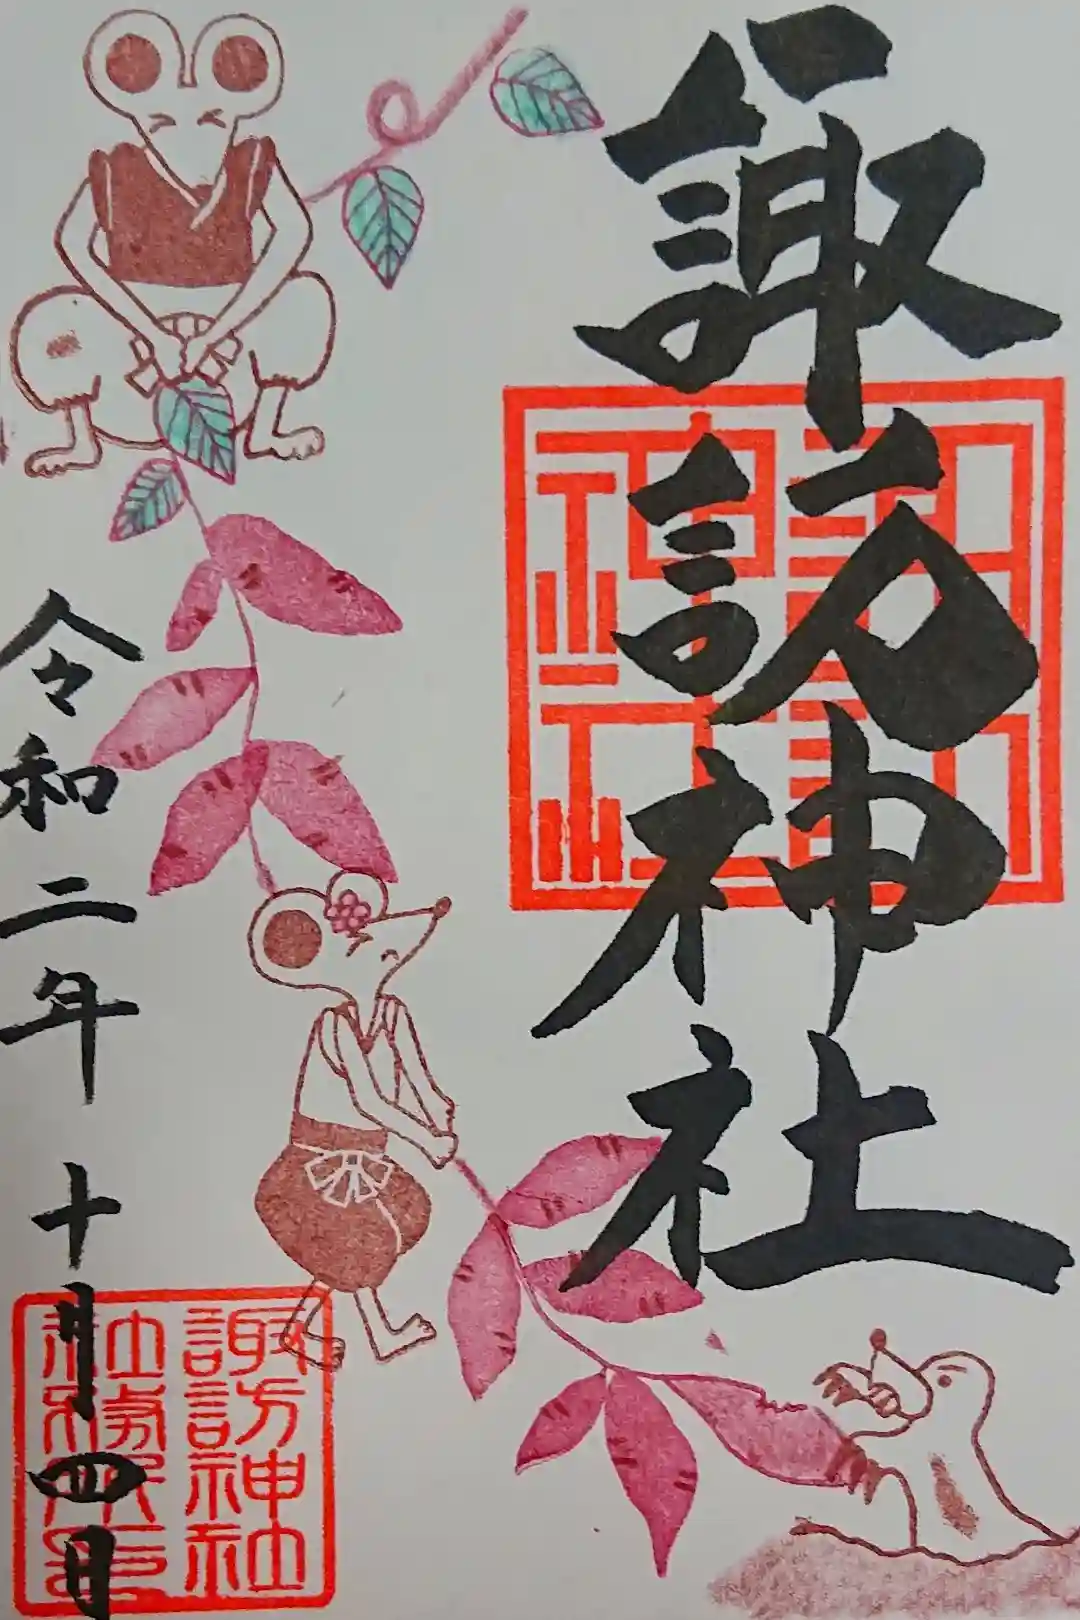 諏訪神社
諏訪
神社
令和二年十月四日
諏訪神社
社務所印